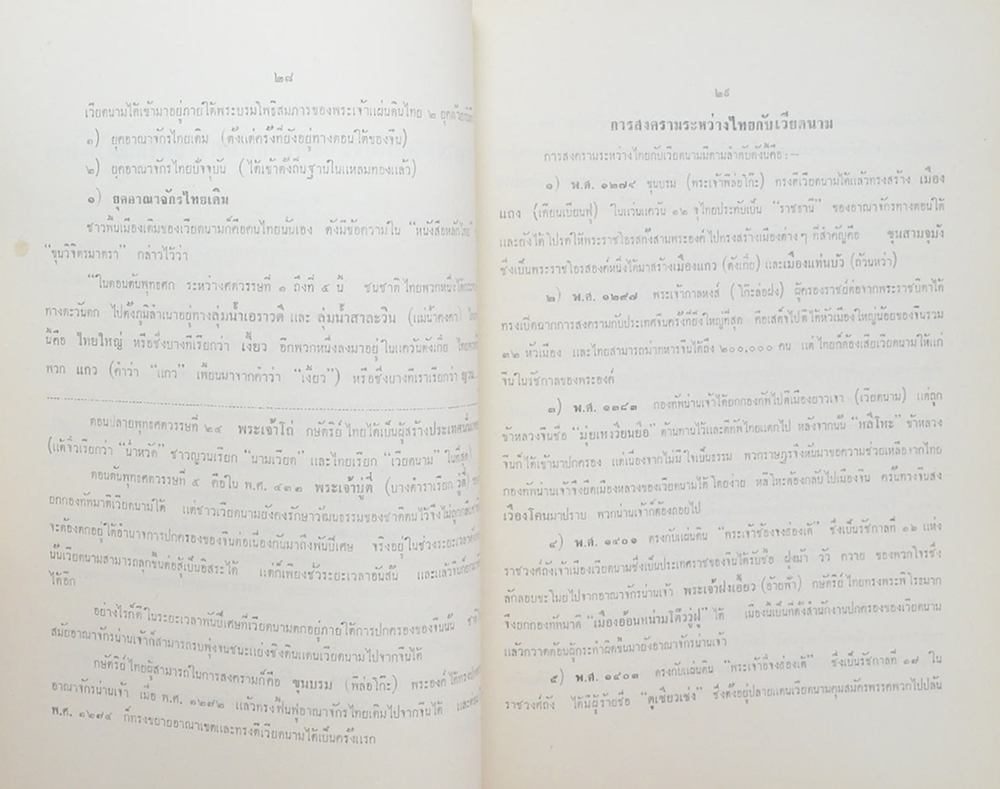 ๒๘
เวียดนามได้เข้ามาอยู่ภายใต้พระบรมโพธิสมภารของพระเจ้าแผ่นดินไทย ๒ ยุคด้วยกัน
๑) ยุคอาณาจักรไทยเดิม (ตั้งแต่ครั้งที่ยังอยู่ทางตอนใต้ของจีน)
๒) ยุคอาณาจักรไทยปัจจุบัน (ได้เข้าตั้งถิ่นฐานในแหลมทองแล้ว)
๑) ยุคอาณาจักรไทยเดิม
ชาวพื้นเมืองเดิมของเวียดนามก็คือคนไทยนั่นเอง ดังมีข้อความใน "หนังสือหลักไทย"
"ขุนวิจิตรมาตรา" กล่าวไว้ว่า
"ในตอนต้นพุทธศก ระหว่างศตวรรษที่ ๑ ถึงที่ ๕ นี้ ชนชาติไทยพวกหนึ่งได้
ทางตะวันตก ไปตั้งภูมิลำเนาอยู่ทางลุ่มน้ำเอราวดี และ ลุ่มน้ำสาละวิน (แม่น้ำคงคา)
นี้คือ ไทยใหญ่ หรือซึ่งบางทีเรียกว่า เงี้ยว อีกพวกหนึ่งลงมาอยู่ในแคว้นตังเกี๋ย
พวก แกว (คำว่า "แกว" เพี้ยนมาจากคำว่า "เงี้ยว") หรือซึ่งบางทีเราเรียกว่า ญวน
ตอนปลายพุทธศตวรรษที่ ๒๔ พระเจ้าโถ่ กษัตริย์ไทยได้เป็นผู้สร้างประเทศ
(แต่จีนเรียกว่า "น่ำหวัด" ชาวญวนเรียก "นามเวียด" และไทยเรียก "เวียดนาม"
ตอนต้นพุทธศตวรรษที่ ๕ คือใน พ.ศ. ๔๓๒ พระเจ้าบู่ตี่ (บางตำราเรียก วู่ตี้)
ยกกองทัพมาตีเวียดนามได้ แต่ชาวเวียดนามยังคงรักษาวัฒนธรรมของชาติตนไว้จึงไม่ถูก
จะต้องตกอยู่ใต้อำนาจการปกครองของจีนต่อเนื่องกันมาถึงพันปีเศษ จริงอยู่ในช่วงระยะเวลา
นั้นเวียดนามสามารถลุกขึ้นต่อสู้เป็นอิสระได้ แต่ก็เพียงชั่วระยะเวลาอันสั้น และแล้วจีนก็
ได้อีก
อย่างไรก็ดีในระยะเวลาพันปีเศษที่เวียดนามตกอยู่ภายใต้การปกครองของจีนนั้น
สมัยอาณาจักรน่านเจ้าก็สามารถรบพุ่งจนชนะแย่งชิงดินแดนเวียดนามไปจากจีนได้
กษัตริย์ไทยผู้สามารถในการสงครามก็คือ ขุนบรม (พีล่อโก๊ะ) พระองค์ได้ทรง
อาณาจักรน่านเจ้า เมื่อ พ.ศ. ๑๒๗๒ แล้วทรงฟื้นฟูอาณาจักรไทยเดิมไปจากจีนได้
พ.ศ. ๑๒๗๔ ก็ทรงขยายอาณาเขตและทรงตีเวียดนามได้เป็นครั้งแรก
๒๙
การสงครามระหว่างไทยกับเวียดนาม
การสงครามระหว่างไทยกับเวียดนามมีตามลำดับดังนี้คือ :-
๑) พ.ศ. ๑๒๗๔ ขุนบรม (พระเจ้าพีล่อโก๊ะ) ทรงตีเวียดนามได้แล้วทรงสร้าง เมือง
แถง (เดียนเบียนฟู) ในแว่นแคว้น ๑๒ จุไทยประดับเป็น "ราชธานี" ของอาณาจักรทางตอนใต้
และยังได้โปรดให้พระราชโอรสทั้งสามพระองค์ไปทรงสร้างเมืองต่างๆ ที่สำคัญคือ ขุนสามจุมัง
ซึ่งเป็นพระราชโอรสองค์หนึ่งได้มาสร้างเมืองแกว (ตังเกี๋ย) และเมืองแท่นบัว (ถ้วนหว่า)
๒) พ.ศ. ๑๒๙๗ พระเจ้ากาลหงส์ (โก๊ะล่อฝง) ผู้ครองราชย์ต่อจากพระราชบิดาได้
ทรงเปิดฉากการสงครามกับประเทศจีนครั้งที่ยิ่งใหญ่ที่สุด คือเสด็จไปตีได้หัวเมืองใหญ่น้อยของจีนรวม
๓๒ หัวเมือง และไทยสามารถฆ่าทหารจีนได้ถึง ๒๐๐,๐๐๐ คน แต่ไทยก็ต้องเสียเวียดนามให้แก่
จีนในรัชกาลของพระองค์
๓) พ.ศ. ๑๓๘๓ กองทัพน่านเจ้าได้ยกกองทัพไปตีเมืองยาวเจา (เวียดนาม) แต่ถูก
ข้าหลวงจีนชื่อ "มุ่ยเหงเวียนยื้อ" ต้านทานไว้และตีทัพไทยแตกไป หลังจากนั้น "หลีโหะ" ข้าหลวง
จีนก็ได้เข้ามาปกครอง แต่เนื่องจากไม่มีใจเป็นธรรม พวกราษฎรจึงหันมาขอความช่วยเหลือจากไทย
กองทัพน่านเจ้าจึงยึดเมืองหลวงของเวียดนามได้โดยง่าย หลีโหะต้องกลับไปเมืองจีน ครั้นทางจีนส่ง
เวืองโคนมาปราบ พวกน่านเจ้าก็ต้องถอยไป
๔) พ.ศ. ๑๔๐๑ ตรงกับแผ่นดิน "พระเจ้าซ้องจงฮ่องเต้" ซึ่งเป็นรัชกาลที่ ๑๖ แห่ง
ราชวงศ์ถังเจ้าเมืองเวียดนามซึ่งเป็นประเทศราชของจีนได้รับซื้อ ฝูงม้า วัว ควาย ของพวกโจรซึ่ง
ลักลอบขะโมยไปจากอาณาจักรน่านเจ้า พระเจ้าฝงเอี้ยว (อ้ายฟ้า) กษัตริย์ไทยทรงพระพิโรธมาก
จึงยกกองทัพมาตี "เมืองอ้อนหน่ามโต๊วฮู่ฝู" ได้ เมืองนี้เป็นที่ตั้งสำนักงานปกครองของเวียดนาม
แล้วกวาดต้อนผู้กระทำผิดขึ้นมายังอาณาจักรน่านเจ้า
๕) พ.ศ. ๑๔๐๓ ตรงกับแผ่นดิน "พระเจ้าอึ้งจงฮ่องเต้" ซึ่งเป็นรัชกาลที่ ๑๗ ใน
ราชวงศ์ถัง ได้มีผู้ร้ายชื่อ "ตูเซียวเซ่ง" ซึ่งตั้งอยู่ปลายแดนเวียดนามคุมสมัครพรรคพวกไปปล้น